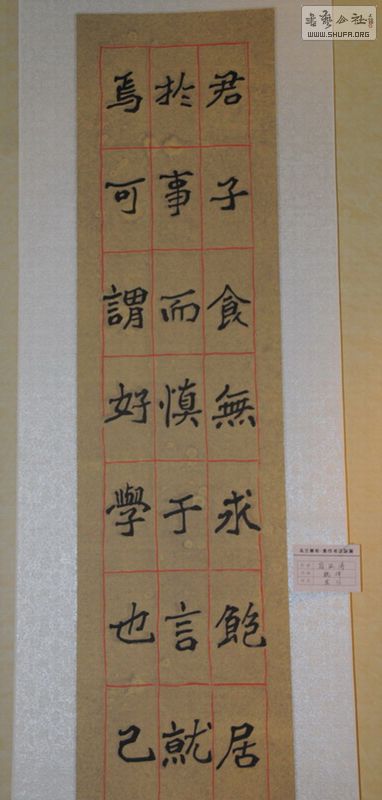 君子食無求飽居
於事而慎于言就
焉可謂好學也己
書藝公社
WWW.SHUFA.ORG